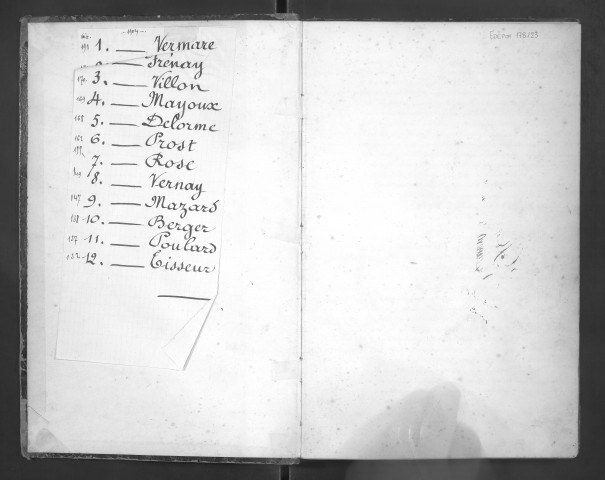 1904
1. — Vermare
2. — Frénay
3. — Villon
4. — Mayoux
5. — Delorme
6. — Prost
7. — Rose
8. — Vernay
147 9. — Mazard
138 10. — Berger
137 11. — Poulard
12. — Tisseur